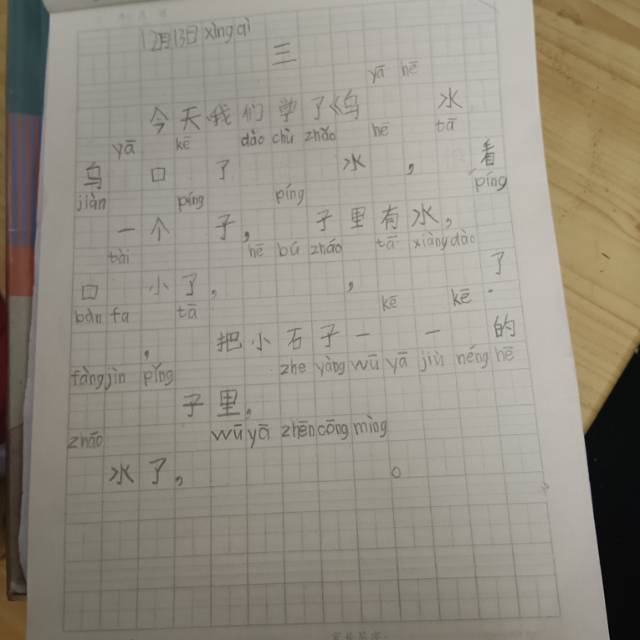 12月13日xìng qī
三
yā hē
今天我们学了《乌 水
yā kě dào chù zhǎo hē tā
乌 口 了 水，看
jiàn píng píng píng
一个 子，子里有水，
tài hē bú zháo tā xiàng dào
口 小了， ， 了
bàn fa tā kē kē .
， 把小石子一 一 的
fàng jìn píng zhe yàng wū yā jiù néng hē
子里，
zháo wū yā zhēn cōng mìng
水了， 。